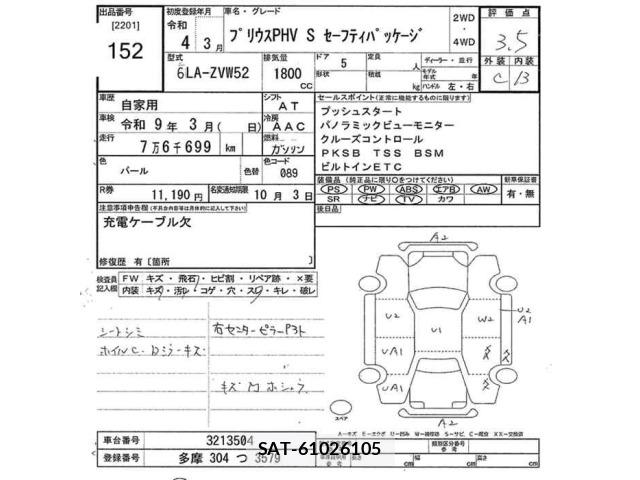 出品番号 [2201] 152
初度登録年月 令和 4年 3月
車名・グレード プリウスPHV S セーフティパッケージ
2WD ・ 4WD
評価点 3.5
型式 6LA-ZVW52
排気量 1800 CC
ドア 5 形状
定員 人 積載 kg
ディーラー・並行 モデル年式 年 ハンドル 左・右
外装 C 内装 B
車歴 自家用
シフト AT
車検 令和 9年 3月( 日)
冷房 AAC
走行 7万6千699 km
燃料 ガソリン
色 パール 色替
色コード 089
R券 11,190円
名変通知期限 10月 3日
セールスポイント(正常に機能するものに限ります)
プッシュスタート
パノラミックビューモニター
クルーズコントロール
PKSB TSS BSM
ビルトインETC
装備品 (純正品に限り○をつけてください) 新車保証書
PS PW ABS エアB AW 有・無
SR ナビ TV カワ
後日品
注意事項申告欄
充電ケーブル欠
修復歴 有〔箇所 〕
検査員記入欄 FW キズ・飛石・ヒビ割・リペア跡・×要
内装 キズ・汚レ・コゲ・穴・スレ・キレ・破レ
シートシミ
ホイルC・Dミラーキズ
右センターピラーP3ト
A2
U2 U1 W2 U2 A1
UA1
UA1
A2
スペア
A-キズ E-エクボ U-凹み W-補修跡 S-サビ C-腐蝕 XX-交換済
車台番号 3213504
登録番号 多摩 304 つ 3579
SAT-61026105
類別区分番号 参考
長さ cm 幅 cm 高さ cm